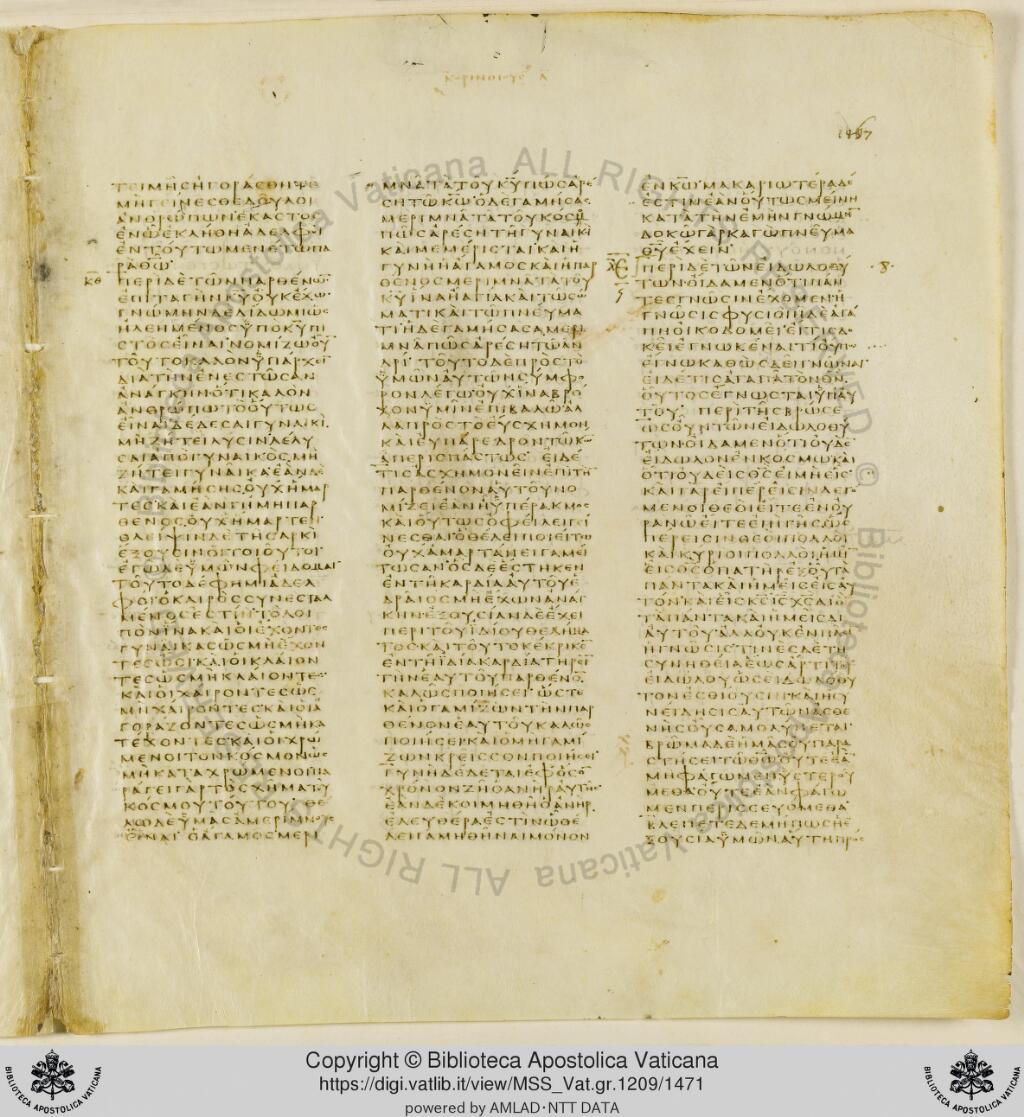 ΚΟΡΙΝΘΙΟΥΣ Α
1467
ΤΕΙΜΗΣΗΓΟΡΑΣΘΗΤΕ
ΜΗΓΕΙΝΕΣΘΕΔΟΥΛΟΙ
ΑΝΘΡΩΠΩΝΕΚΑΣΤΟΣ
ΕΝΩΕΚΛΗΘΗΑΔΕΛΦΟΙ
ΕΝΤΟΥΤΩΜΕΝΕΤΩΠΑ
ΡΑΘΩ
ΠΕΡΙΔΕΤΩΝΠΑΡΘΕΝΩ̅
ΕΠΙΤΑΓΗΝΚΥΟΥΚΕΧΩ
ΓΝΩΜΗΝΔΕΔΙΔΩΜΙΩΣ
ΗΛΕΗΜΕΝΟΣΥΠΟΚΥΠΙ
ΣΤΟΣΕΙΝΑΙΝΟΜΙΖΩΟΥ
ΤΟΥΤΟΚΑΛΟΝΥΠΑΡΧΕΙ
ΔΙΑΤΗΝΕΝΕΣΤΩΣΑΝ
ΑΝΑΓΚΗΝΟΤΙΚΑΛΟΝ
ΑΝΘΡΩΠΩΤΟΟΥΤΩΣ
ΕΙΝΑΙΔΕΔΕΣΑΙΓΥΝΑΙΚΙ
ΜΗΖΗΤΕΙΛΥΣΙΝΛΕΛΥ
ΣΑΙΑΠΟΓΥΝΑΙΚΟΣΜΗ
ΖΗΤΕΙΓΥΝΑΙΚΑΕΑΝΔΕ
ΚΑΙΓΑΜΗΣΗΣΟΥΧΗΜΑΡ
ΤΕΣΚΑΙΕΑΝΓΗΜΗΠΑΡ
ΘΕΝΟΣΟΥΧΗΜΑΡΤΕΝ
ΘΛΕΙΨΙΝΔΕΤΗΣΑΡΚΙ
ΕΞΟΥΣΙΝΟΙΤΟΙΟΥΤΟΙ
ΕΓΩΔΕΥΜΩΝΦΕΙΔΟΜΑΙ
ΤΟΥΤΟΔΕΦΗΜΙΑΔΕΛ
ΦΟΙΟΚΑΙΡΟΣΣΥΝΕΣΤΑΛ
ΜΕΝΟΣΕΣΤΙΝΤΟΛΟΙ
ΠΟΝΙΝΑΚΑΙΟΙΕΧΟΝΤΕΣ
ΓΥΝΑΙΚΑΣΩΣΜΗΕΧΟΝ
ΤΕΣΩΣΙΚΑΙΟΙΚΛΑΙΟΝ
ΤΕΣΩΣΜΗΚΛΑΙΟΝΤΕΣ
ΚΑΙΟΙΧΑΙΡΟΝΤΕΣΩΣ
ΜΗΧΑΙΡΟΝΤΕΣΚΑΙΟΙΑ
ΓΟΡΑΖΟΝΤΕΣΩΣΜΗΚΑ
ΤΕΧΟΝΤΕΣΚΑΙΟΙΧΡΩ
ΜΕΝΟΙΤΟΝΚΟΣΜΟΝΩΣ
ΜΗΚΑΤΑΧΡΩΜΕΝΟΙΠΑ
ΡΑΓΕΙΓΑΡΤΟΣΧΗΜΑΤΟΥ
ΚΟΣΜΟΥΤΟΥΤΟΥΘΕ
ΛΩΔΕΥΜΑΣΑΜΕΡΙΜΝΟΥΣ
ΕΙΝΑΙΟΑΓΑΜΟΣΜΕΡΙ
ΜΝΑΤΑΤΟΥΚΥΠΩΣΑΡΕ
ΣΗΤΩΚΩΟΔΕΓΑΜΗΣΑΣ
ΜΕΡΙΜΝΑΤΑΤΟΥΚΟΣΜΟΥ
ΠΩΣΑΡΕΣΗΤΗΓΥΝΑΙΚΙ
ΚΑΙΜΕΜΕΡΙΣΤΑΙΚΑΙΗ
ΓΥΝΗΗΑΓΑΜΟΣΚΑΙΗΠΑΡ
ΘΕΝΟΣΜΕΡΙΜΝΑΤΑΤΟΥ
ΚΥΙΝΑΗΑΓΙΑΚΑΙΤΩΣΩ
ΜΑΤΙΚΑΙΤΩΠΝΕΥΜΑ
ΤΙΗΔΕΓΑΜΗΣΑΣΑΜΕΡΙ
ΜΝΑΠΩΣΑΡΕΣΗΤΩΑΝ
ΔΡΙΤΟΥΤΟΔΕΠΡΟΣΤΟ
ΥΜΩΝΑΥΤΩΝΣΥΜΦΟ
ΡΟΝΛΕΓΩΟΥΧΙΝΑΒΡΟ
ΧΟΝΥΜΙΝΕΠΙΒΑΛΩΑΛ
ΛΑΠΡΟΣΤΟΕΥΣΧΗΜΟΝ
ΚΑΙΕΥΠΑΡΕΔΡΟΝΤΩΚΩ
ΑΠΕΡΙΣΠΑΣΤΩΣΕΙΔΕ
ΤΙΣΑΣΧΗΜΟΝΕΙΝΕΠΙΤΗ
ΠΑΡΘΕΝΟΝΑΥΤΟΥΝΟ
ΜΙΖΕΙΕΑΝΗΥΠΕΡΑΚΜΟΣ
ΚΑΙΟΥΤΩΣΟΦΕΙΛΕΙΓΕΙ
ΝΕΣΘΑΙΟΘΕΛΕΙΠΟΙΕΙΤΩ
ΟΥΧΑΜΑΡΤΑΝΕΙΓΑΜΕΙ
ΤΩΣΑΝΟΣΔΕΕΣΤΗΚΕΝ
ΕΝΤΗΚΑΡΔΙΑΑΥΤΟΥΕ
ΔΡΑΙΟΣΜΗΕΧΩΝΑΝΑΓ
ΚΗΝΕΞΟΥΣΙΑΝΔΕΕΧΕΙ
ΠΕΡΙΤΟΥΙΔΙΟΥΘΕΛΗΜΑ
ΤΟΣΚΑΙΤΟΥΤΟΚΕΚΡΙΚΕ
ΕΝΤΗΙΔΙΑΚΑΡΔΙΑΤΗΡΕΙ
ΤΗΝΕΑΥΤΟΥΠΑΡΘΕΝΟ
ΚΑΛΩΣΠΟΙΗΣΕΙΩΣΤΕ
ΚΑΙΟΓΑΜΙΖΩΝΤΗΝΠΑΡ
ΘΕΝΟΝΕΑΥΤΟΥΚΑΛΩΣ
ΠΟΙΗΣΕΙΚΑΙΟΜΗΓΑΜΙ
ΖΩΝΚΡΕΙΣΣΟΝΠΟΙΗΣΕΙ
ΓΥΝΗΔΕΔΕΤΑΙΕΦΟΣΟ
ΧΡΟΝΟΝΖΗΟΑΝΗΡΑΥΤΗΣ
ΕΑΝΔΕΚΟΙΜΗΘΗΟΑΝΗΡ
ΕΛΕΥΘΕΡΑΕΣΤΙΝΩΘΕ
ΛΕΙΓΑΜΗΘΗΝΑΙΜΟΝΟΝ
ΕΝΚΩΜΑΚΑΡΙΩΤΕΡΑΔΕ
ΕΣΤΙΝΕΑΝΟΥΤΩΣΜΕΙΝΗ
ΚΑΤΑΤΗΝΕΜΗΝΓΝΩΜΗ
ΔΟΚΩΓΑΡΚΑΓΩΠΝΕΥΜΑ
ΘΥΕΧΕΙΝ
ΠΕΡΙΔΕΤΩΝΕΙΔΩΛΟΘΥ
ΤΩΝΟΙΔΑΜΕΝΟΤΙΠΑΝ
ΤΕΣΓΝΩΣΙΝΕΧΟΜΕΝΗ
ΓΝΩΣΙΣΦΥΣΙΟΙΗΔΕΑΓΑ
ΠΗΟΙΚΟΔΟΜΕΙΕΙΤΙΣΔΟ
ΚΕΙΕΓΝΩΚΕΝΑΙΤΙΟΥΠΩ
ΕΓΝΩΚΑΘΩΣΔΕΙΓΝΩΝΑΙ
ΕΙΔΕΤΙΣΑΓΑΠΑΤΟΝΘΝ
ΟΥΤΟΣΕΓΝΩΣΤΑΙΥΠΑΥ
ΤΟΥΠΕΡΙΤΗΣΒΡΩΣΕ
ΩΣΟΥΝΤΩΝΕΙΔΩΛΟΘΥ
ΤΩΝΟΙΔΑΜΕΝΟΤΙΟΥΔΕ
ΕΙΔΩΛΟΝΕΝΚΟΣΜΩΚΑΙ
ΟΤΙΟΥΔΕΙΣΘΣΕΙΜΗΕΙΣ
ΚΑΙΓΑΡΕΙΠΕΡΕΙΣΙΝΛΕΓΟ
ΜΕΝΟΙΘΕΟΙΕΙΤΕΕΝΟΥ
ΡΑΝΩΕΙΤΕΕΠΙΓΗΣΩΣ
ΠΕΡΕΙΣΙΝΘΕΟΙΠΟΛΛΟΙ
ΚΑΙΚΥΡΙΟΙΠΟΛΛΟΙΗΜΙ
ΕΙΣΘΣΟΠΑΤΗΡΕΞΟΥΤΑ
ΠΑΝΤΑΚΑΙΗΜΕΙΣΕΙΣΑΥ
ΤΟΝΚΑΙΕΙΣΚΣΙΣΧΣΔΙΟ
ΤΑΠΑΝΤΑΚΑΙΗΜΕΙΣΔΙ
ΑΥΤΟΥΑΛΛΟΥΚΕΝΠΑΣΙ
ΗΓΝΩΣΙΣΤΙΝΕΣΔΕΤΗ
ΣΥΝΗΘΕΙΑΕΩΣΑΡΤΙΤΟΥ
ΕΙΔΩΛΟΥΩΣΕΙΔΩΛΟΘΥ
ΤΟΝΕΣΘΙΟΥΣΙΝΚΑΙΗΣΥ
ΝΕΙΔΗΣΙΣΑΥΤΩΝΑΣΘΕ
ΝΗΣΟΥΣΑΜΟΛΥΝΕΤΑΙ
ΒΡΩΜΑΔΕΗΜΑΣΟΥΠΑΡΑ
ΣΤΗΣΕΙΤΩΘΩΟΥΤΕΕΑ
ΜΗΦΑΓΩΜΕΝΥΣΤΕΡΟΥ
ΜΕΘΑΟΥΤΕΕΑΝΦΑΓΩ
ΜΕΝΠΕΡΙΣΣΕΥΟΜΕΘΑ
ΒΛΕΠΕΤΕΔΕΜΗΠΩΣΗΕ
ΞΟΥΣΙΑΥΜΩΝΑΥΤΗΠΡΟΣ
Copyright © Biblioteca Apostolica Vaticana
https://digi.vatlib.it/view/MSS_Vat.gr.1209/1471
powered by AMLAD·NTT DATA
BIBLIOTECA APOSTOLICA VATICANA
BIBLIOTECA APOSTOLICA VATICANA